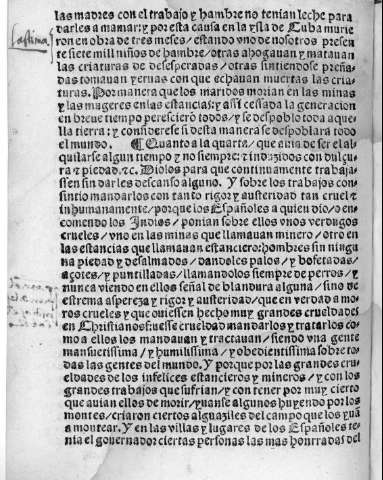 las madres con el trabajo y hambre no tenian leche para
darles a mamar: y por esta causa en la ysla de Cuba murie
lastima
ron en obra de tres meses / estando vno de nosotros presen
te siete mill niños de hambre / otras ahogauan y matauan
las criaturas de desesperadas / otras sintiendose preña-
das tomauan yeruas con que echauan muertas las cria-
turas. Por manera que los maridos morian en las minas
y las mugeres en las estancias: y assi cessada la generacion
en breue tiempo perescierō todos / y se despoblo toda aque
lla tierra: y considerese si desta manera se despoblara todo
el mundo. ¶ Quanto a la quarta / que auia de ser el al-
quilarse algun tiempo y no siempre: ⁊ induzidos con dulçu
ra ⁊ piedad. ⁊c. Diolos para que continuamente trabaja-
ssen sin darles descanso alguno. Y sobre los trabajos con
sintio mandarlos con tanto rigor y austeridad tan cruel ⁊
inhumanamente / porque los Españoles a quien dio / o en
comendo los Indios / ponian sobre ellos vnos verdugos
crueles / vno en las minas que llamauan minero / otro en
las estancias que llamauan estanciero: hombres sin ningu
na piedad y desalmados / dandoles palos / y bofetadas /
açotes / y puntilladas / llamandolos siempre de perros / y
nunca viendo en ellos señal de blandura alguna / sino de
estrema aspereza y rigor y austeridad / que en verdad a mo
ros crueles y que ouiessen hecho muy grandes crueldades
en Christianos fuesse crueldad mandarlos y tratarlos co-
mo a ellos los mandauan y tractauan / siendo vna gente
mansuetissima / y humilissima / y obedientissima sobre to-
das las gentes del mundo. Y porque por las grandes cru-
eldades de los infelices estancieros y mineros / y con los
grandes trabajos que sufrian / y con tener por muy cierto
que auian ellos de morir / yuanse algunos huyendo por los
montes / criaron ciertos alguaziles del campo que los yuā
a montear. Y en las villas y lugares de los Españoles te-
nia el gouernador ciertas personas las mas honrradas del